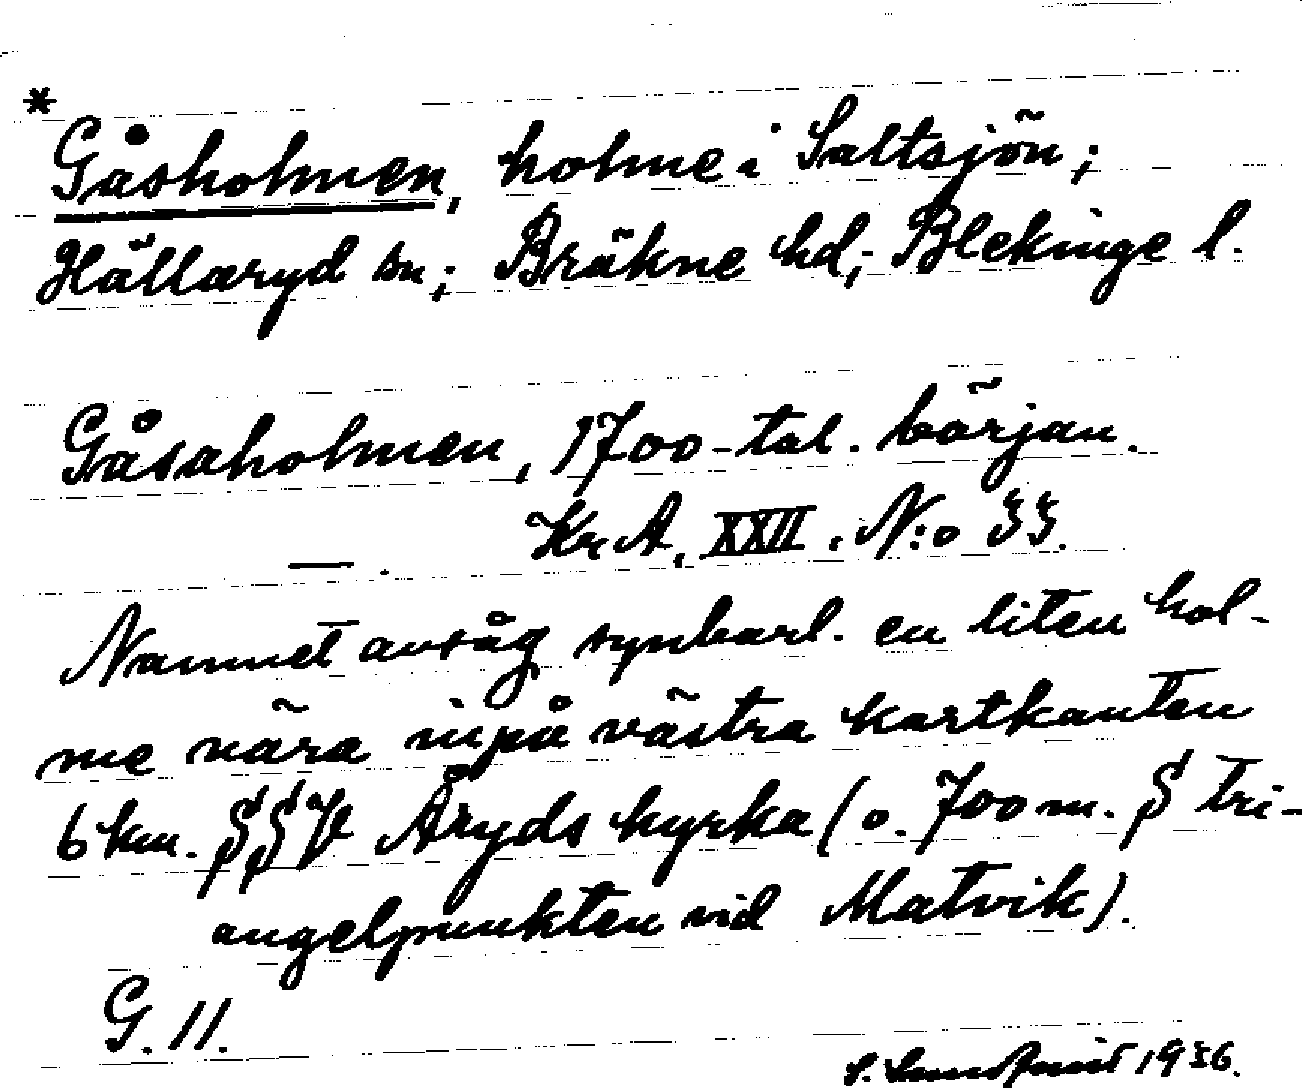 * Gåsholmen, holme i Saltsjön;
Hällaryd sn; Bräkne hd; Blekinge l.
Gåsaholmen, 1700-tal. början.
Kr A, XXII. N:o 33.
— .
Namnet avsåg synbarl. en liten hol-
me nära inpå västra kartkanten
6 km. SSV Åryds kyrka (o. 700 m. S tri-
angelpunkten vid Matvik).
G. 11.
1936.